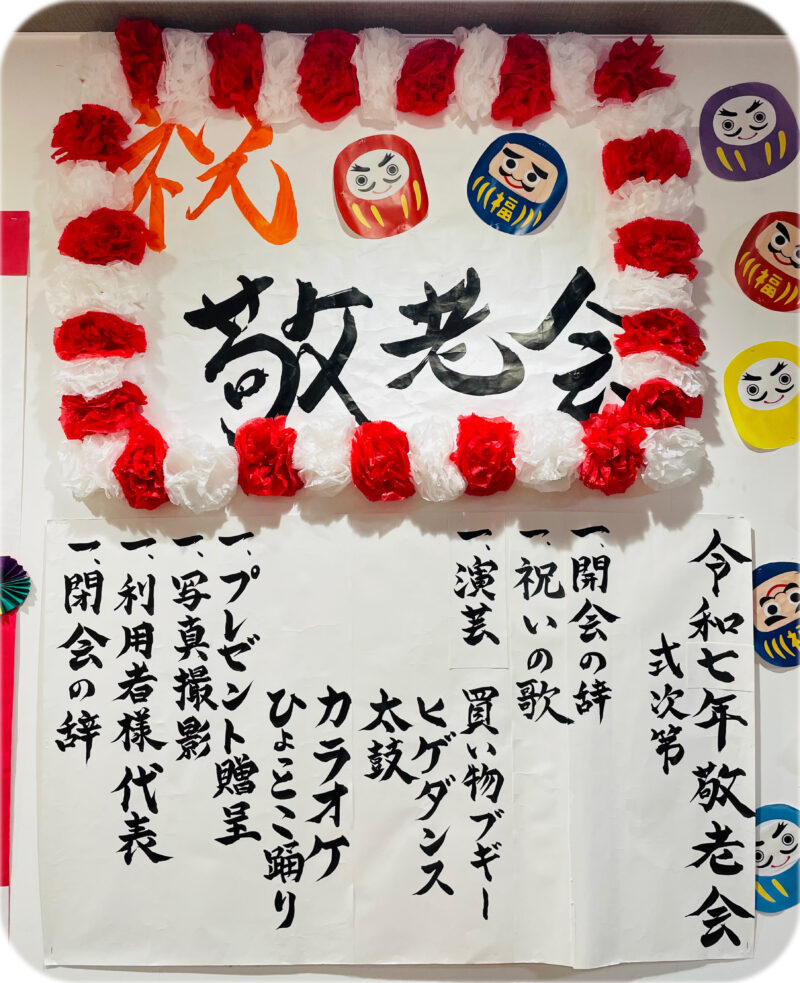 祝
敬老会
福
福
福
令和七年敬老会
式次第
一、開会の辞
一、祝いの歌
一、演芸
買い物ブギー
ヒゲダンス
太鼓
カラオケ
ひょっとこ踊り
一、プレゼント贈呈
一、写真撮影
一、利用者様代表
一、閉会の辞